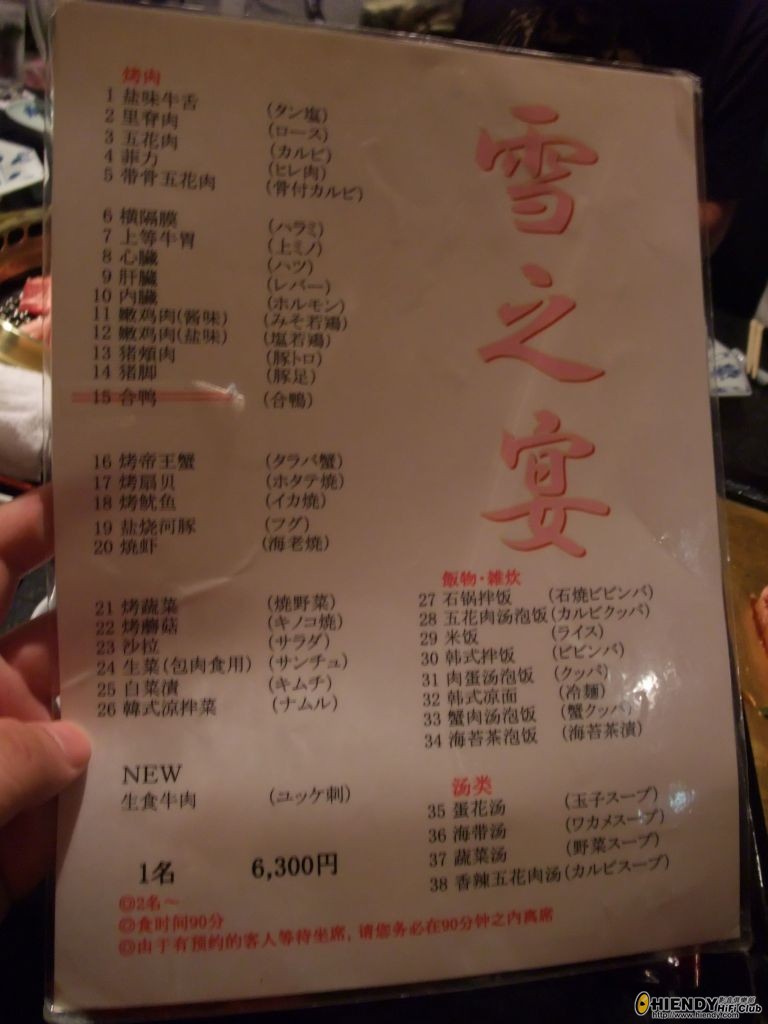 雪之宴
烤肉
1 盐味牛舌 (タン塩)
2 里脊肉 (ロース)
3 五花肉 (カルビ)
4 菲力 (ヒレ肉)
5 带骨五花肉 (骨付カルビ)
6 横隔膜 (ハラミ)
7 上等牛胃 (上ミノ)
8 心臓 (ハツ)
9 肝臓 (レバー)
10 内臓 (ホルモン)
11 嫩鸡肉(酱味) (みそ若鶏)
12 嫩鸡肉(盐味) (塩若鶏)
13 猪頬肉 (豚トロ)
14 猪脚 (豚足)
15 合鸭 (合鴨)
16 烤帝王蟹 (タラバ蟹)
17 烤扇贝 (ホタテ焼)
18 烤鱿鱼 (イカ焼)
19 盐烧河豚 (フグ)
20 烧虾 (海老焼)
21 烤蔬菜 (焼野菜)
22 烤蘑菇 (キノコ焼)
23 沙拉 (サラダ)
24 生菜(包肉食用) (サンチュ)
25 白菜漬 (キムチ)
26 韓式凉拌菜 (ナムル)
NEW
生食牛肉 (ユッケ刺)
1名 6,300円
◎2名～
◎食时间90分
◎由于有预约的客人等待坐席, 请您务必在90分钟之内离席
飯物・雑炊
27 石锅拌饭 (石焼ビビンバ)
28 五花肉汤泡饭 (カルビクッパ)
29 米饭 (ライス)
30 韩式拌饭 (ビビンバ)
31 肉蛋汤泡饭 (クッパ)
32 韩式凉面 (冷麺)
33 蟹肉汤泡饭 (蟹クッパ)
34 海苔茶泡饭 (海苔茶漬)
汤类
35 蛋花汤 (玉子スープ)
36 海带汤 (ワカメスープ)
37 蔬菜汤 (野菜スープ)
38 香辣五花肉汤 (カルビスープ)
HIENDY HiFi Club
http://www.hiendy.com